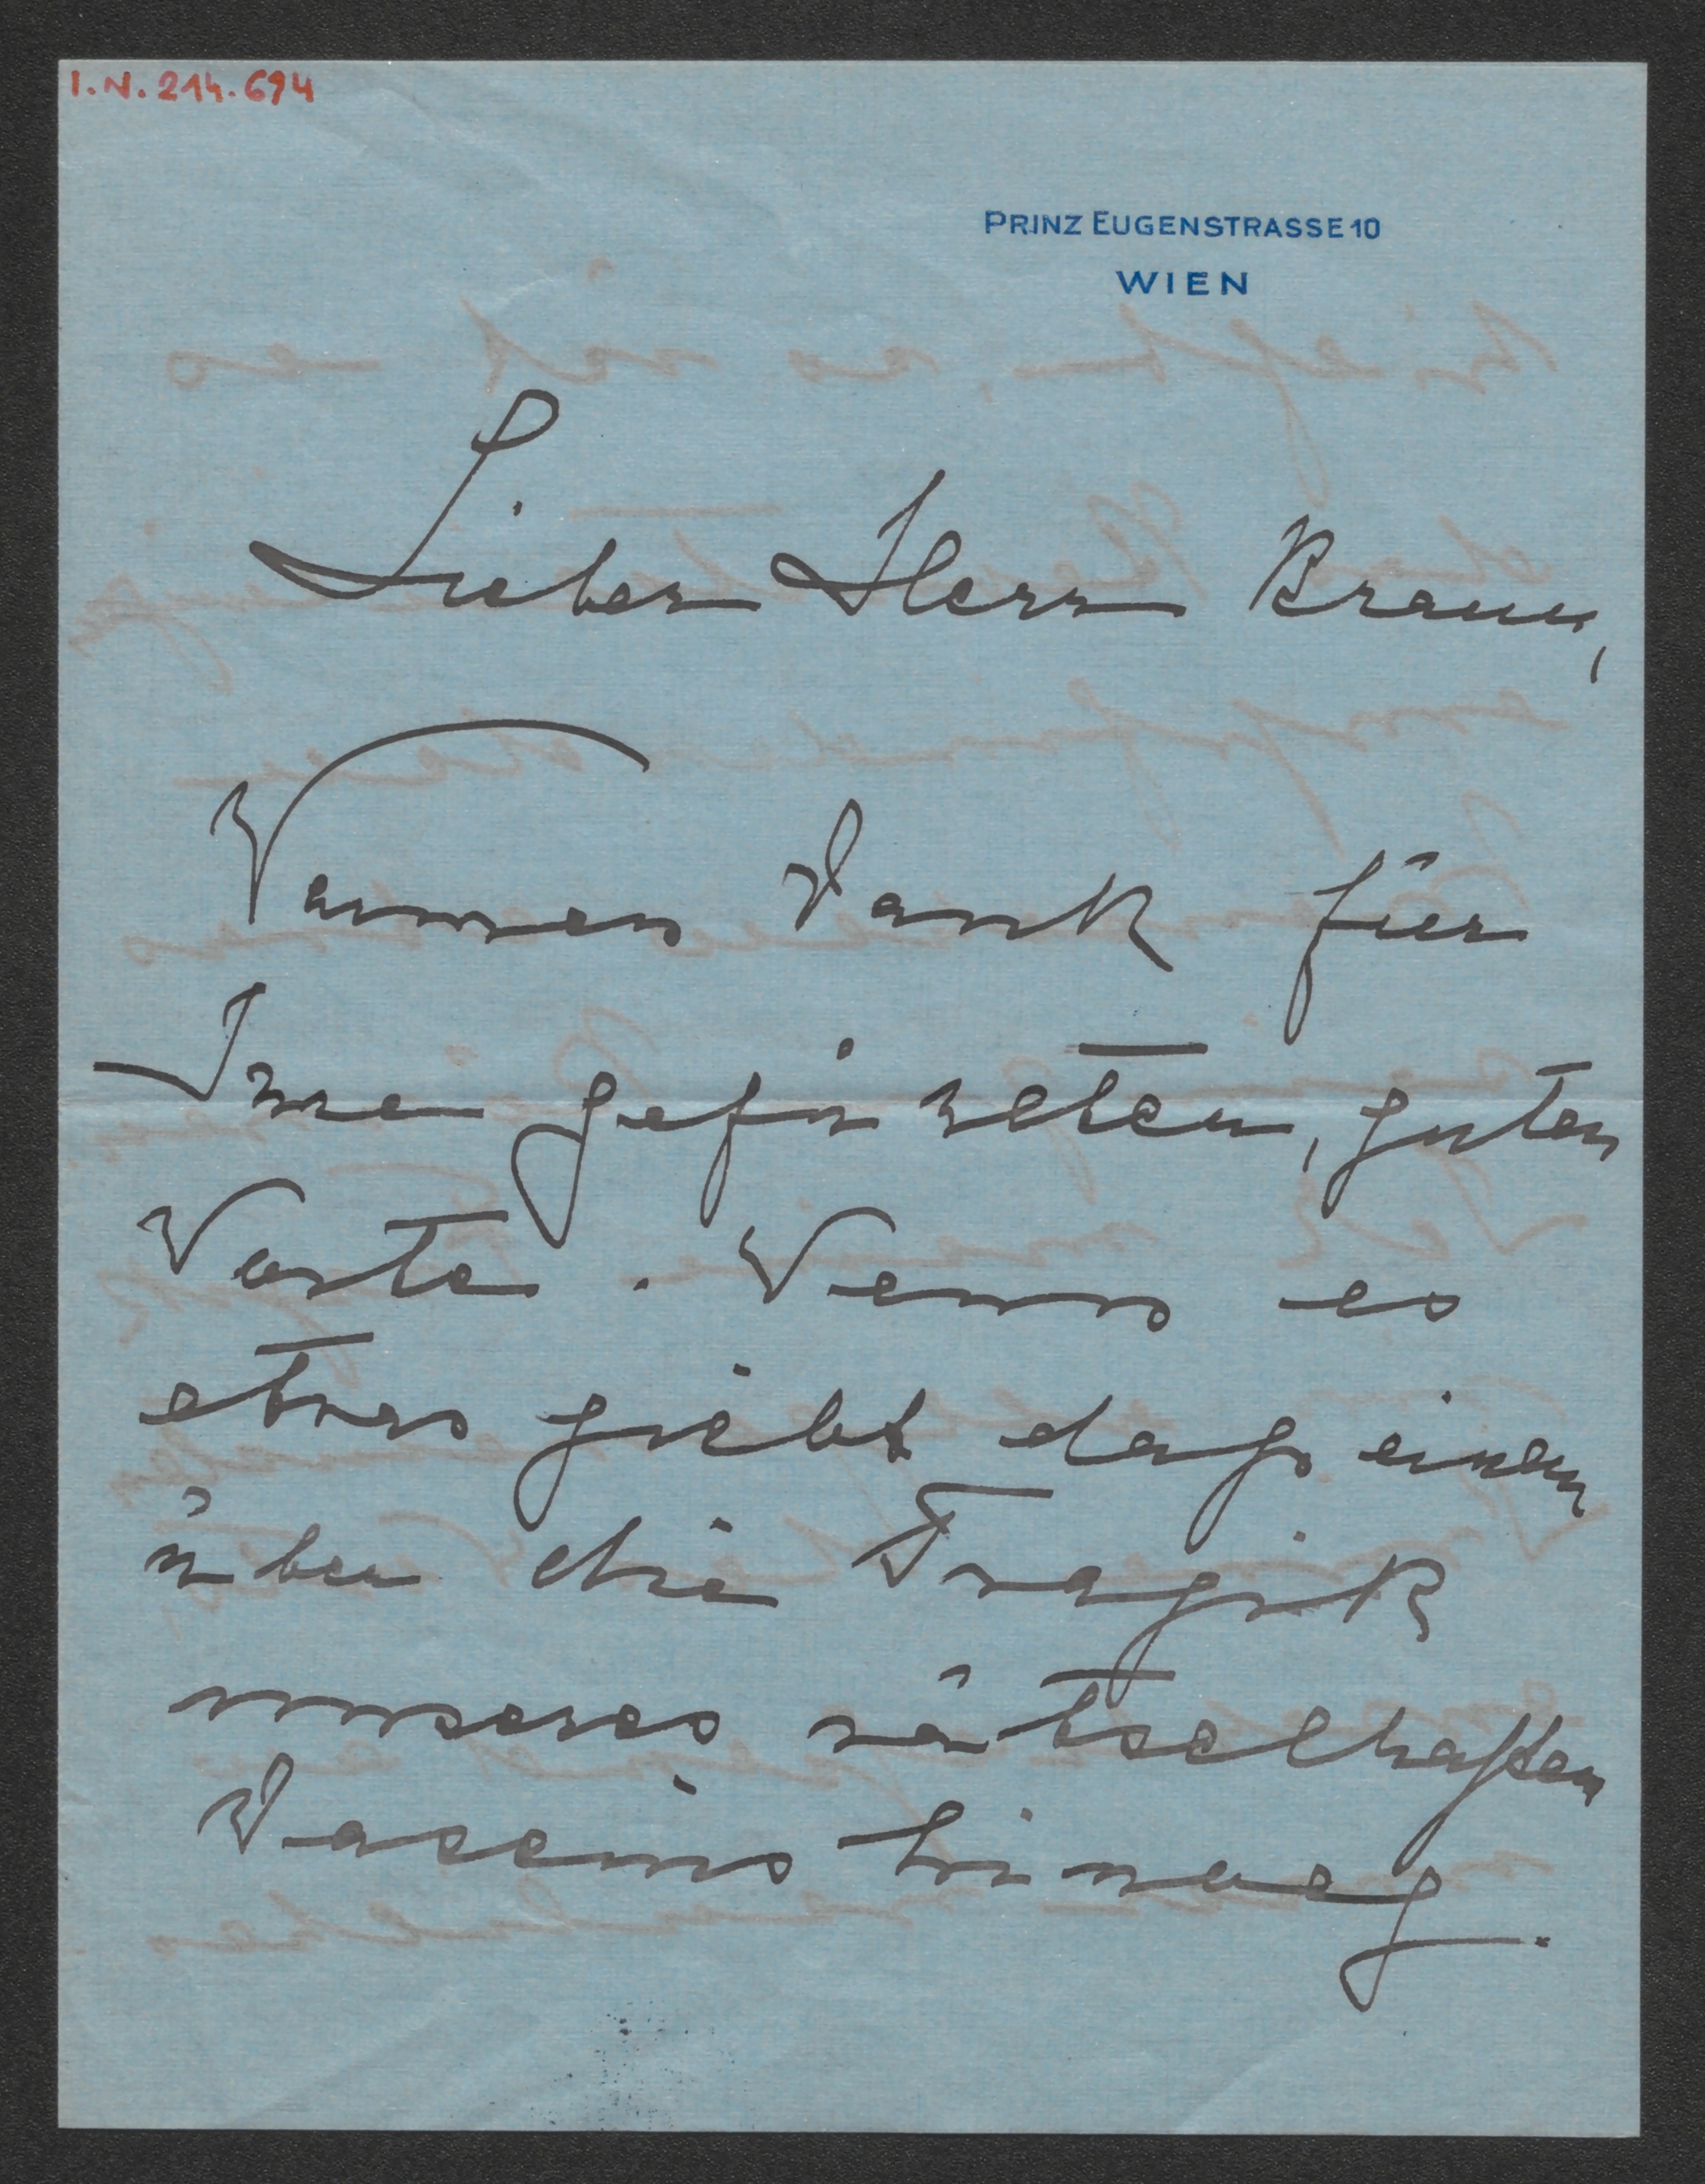 I.N. 214.694
PRINZ EUGENSTRASSE 10
WIEN
Lieber Herr Braun,
Warmen Dank für
Ihre gefühlten, guten
Worte. Wenn es
etwas giebt dass einem
über die Tragik
unseres rätselhaften
Daseins hinweg